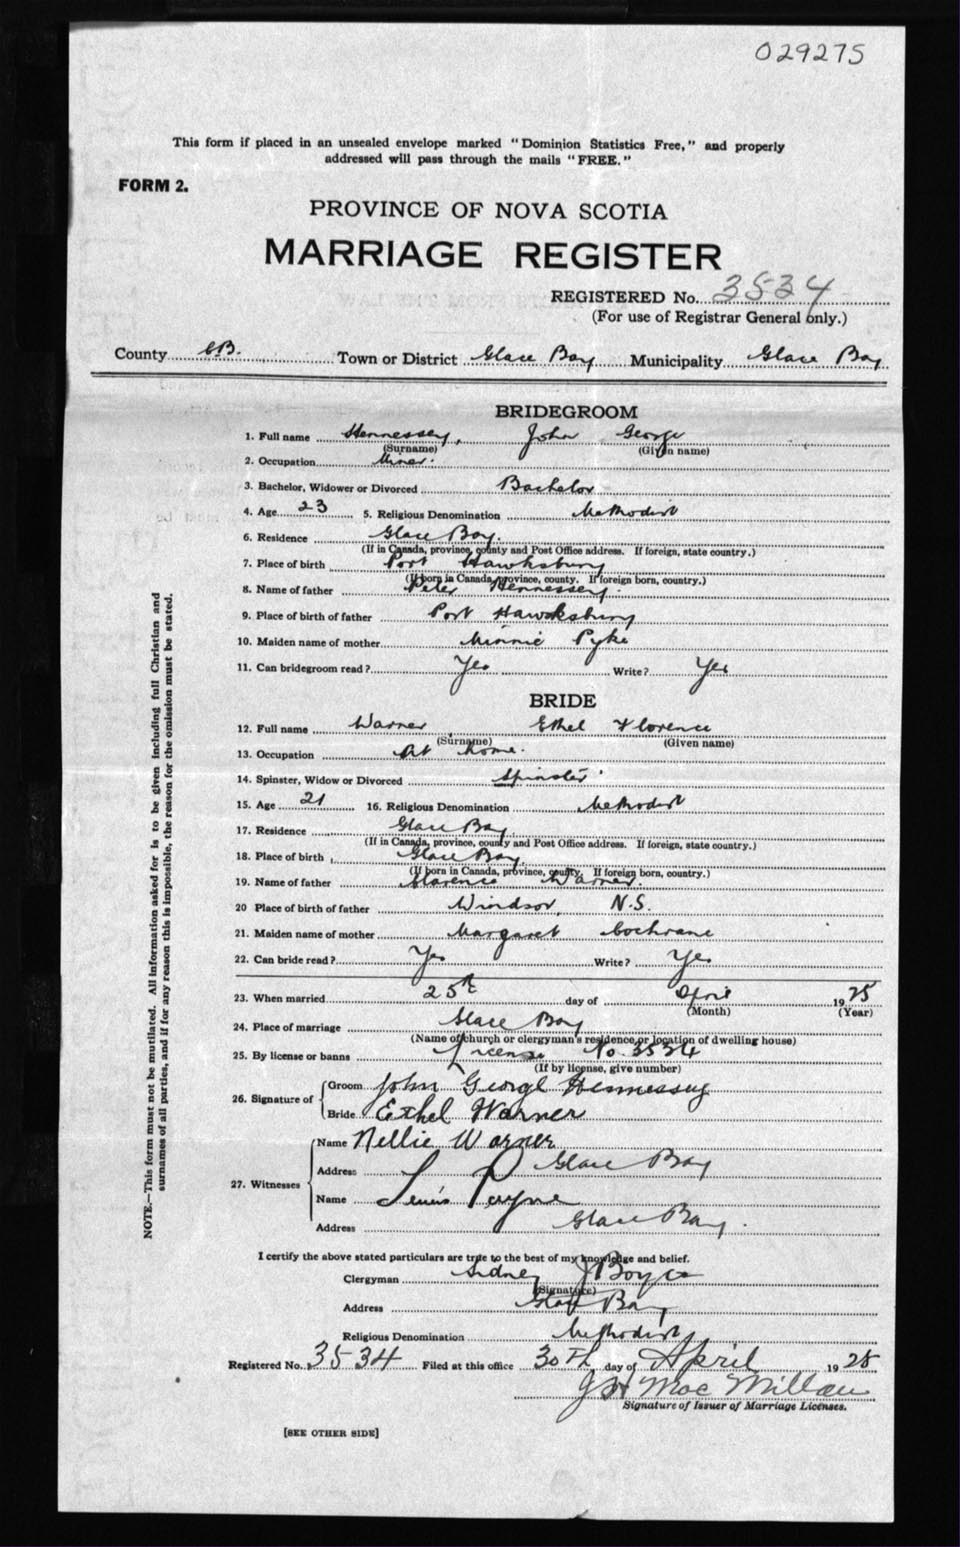 029275
This form if placed in an unsealed envelope marked "Dominion Statistics Free," and properly
addressed will pass through the mails "FREE."
FORM 2.
PROVINCE OF NOVA SCOTIA
MARRIAGE REGISTER
REGISTERED No. 3534
(For use of Registrar General only.)
County C.B. Town or District Glace Bay Municipality Glace Bay
BRIDEGROOM
1. Full name Hennessey, John George
(Surname) (Given name)
2. Occupation Miner.
3. Bachelor, Widower or Divorced Bachelor
4. Age 23 5. Religious Denomination Methodist
6. Residence Glace Bay.
(If in Canada, province, county and Post Office address. If foreign, state country.)
7. Place of birth Port Hawksbury
(If born in Canada, province, county. If foreign born, country.)
8. Name of father Peter Hennessey.
9. Place of birth of father Port Hawksbury
10. Maiden name of mother Minnie Pyke
11. Can bridegroom read? Yes Write? Yes
BRIDE
12. Full name Warner Ethel Florence
(Surname) (Given name)
13. Occupation At home.
14. Spinster, Widow or Divorced Spinster
15. Age 21 16. Religious Denomination Methodist
17. Residence Glace Bay
(If in Canada, province, county and Post Office address. If foreign, state country.)
18. Place of birth Glace Bay
(If born in Canada, province, county. If foreign born, country.)
19. Name of father Clarence Warner.
20 Place of birth of father Windsor, N.S.
21. Maiden name of mother Margaret Cochrane
22. Can bride read? Yes Write? Yes
23. When married 25th day of April 1925
(Month) (Year)
24. Place of marriage Glace Bay
(Name of church or clergyman's residence or location of dwelling house)
25. By license or banns License No. 3534
(If by license, give number)
26. Signature of Groom John George Hennessey
Bride Ethel Warner
27. Witnesses Name Nellie Warner
Address Glace Bay
Name Lewis Payne
Address Glace Bay.
I certify the above stated particulars are true to the best of my knowledge and belief.
Clergyman Sidney J Boyce
(Signature)
Address Glace Bay
Religious Denomination Methodist
Registered No. 3534 Filed at this office 30th day of April 1925
MacMillan
Signature of Issuer of Marriage Licenses.
[SEE OTHER SIDE]
NOTE.—This form must not be mutilated. All information asked for is to be given including full Christian and
surnames of all parties, and if for any reason this is impossible, the reason for the omission must be stated.